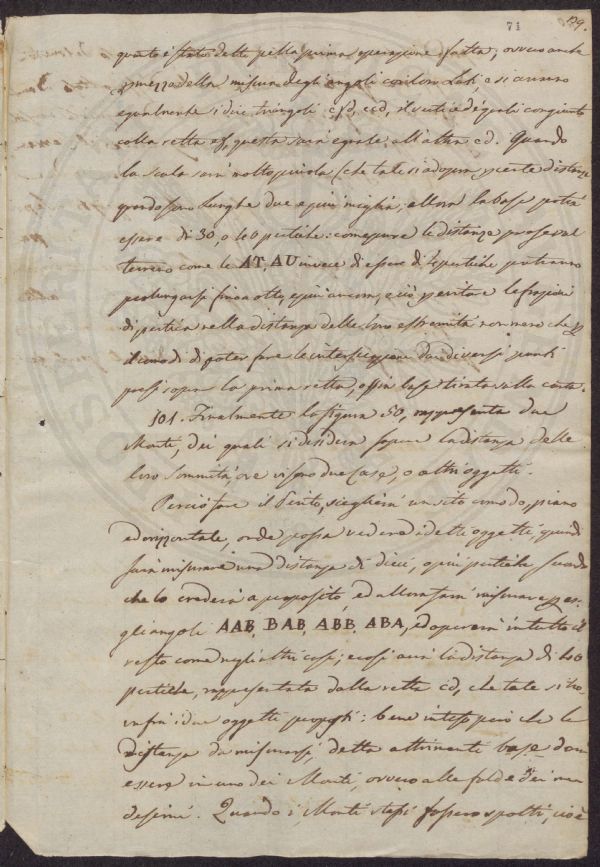 71 129.
questo è stato detto nella prima operazione fatta; ovvero anche
p mezzo della misura degli angoli con loro Lati, e si avranno
egualmente i due triangoli cfd, ecd, il vertice de quali congiunto
colla retta ef, questa sarà eguale all'altra cd. Quando
la scala sarà molto piccola (che tale si adopra p certe distanze
quando sono lunghe due e più miglia, allora la base potrà
essere di 30, o 40 pertiche: come pure le distanze prese sul
terreno come le AT, AU invece di essere di 4 pertiche potranno
prolungarsi fino a otto, e più ancora, e ciò p evitare le frazioni
di pertica nella distanza delle loro estremità non meno che p
il comodo di poter fare le intersecazione da diversi punti
presi sopra la prima retta, ossia base tirata sulla carta.
101. Finalmente la figura 50, rappresenta due
Monti, dei quali si desidera sapere la distanza delle
loro sommità, ove vi sono due Case, o altri oggetti.
Perciò fare il Perito, sceglierà un sito comodo, piano
ed orizzontale, onde possa vedere i detti oggetti, quindi
farà misurare una distanza di dieci, o più pertiche secondo
che lo crederà a proposito, ed allora farà misurare p es.
gli angoli AAB, BAB, ABB, ABA, ed opererà in tutto il
resto come negli altri casi; e così avrà la distanza di 40
pertiche, rappresentata dalla retta cd, che tale si tro
infra i due oggetti proposti: bene inteso però che la
distanza da misurarsi, detta altrimenti base dovrà
essere in uno dei Monti, ovvero alle falde dei me
desimi. Quando i Monti stessi fossero spolti, cioè